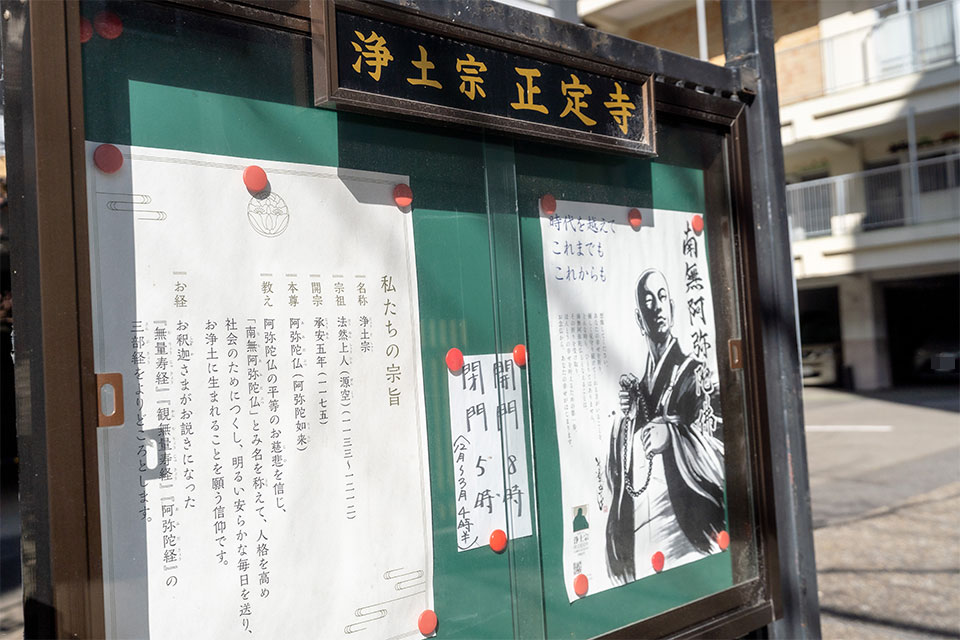 浄土宗 正定寺
私たちの宗旨
名称 浄土宗
宗祖 法然上人(源空)(一一三三〜一二一二)
開宗 承安五年(一一七五)
本尊 阿弥陀仏(阿弥陀如来)
教え 阿弥陀仏の平等のお慈悲を信じ、
「南無阿弥陀仏」とみ名を称えて、人格を高め
社会のためにつくし、明るい安らかな毎日を送り、
お浄土に生まれることを願う信仰です。
お経 お釈迦さまがお説きになった
『無量寿経』『観無量寿経』『阿弥陀経』の
三部経をよりどころとします。
開門 8時
閉門 5時
南無阿弥陀
時代を越えて
これまでも
これからも
浄土宗